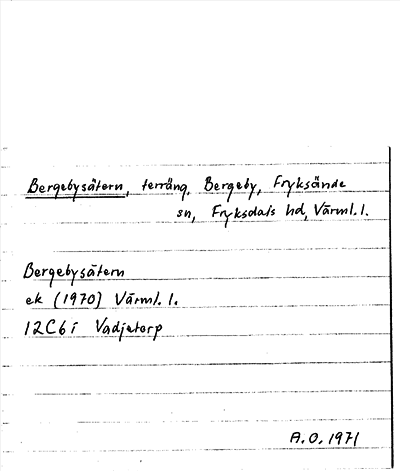 Bergebysätern, terräng, Bergeby, Fryksände
sn, Fryksdals hd, Värml. l.
Bergebysätern
ek (1970) Värml. l.
12C6i Vadjetorp
A.O. 1971